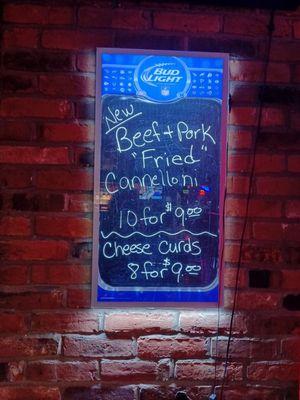 BUD
LIGHT
New
Beef + Pork
"Fried"
Cannelloni
10 for $9.00
Cheese Curds
8 for $9.00